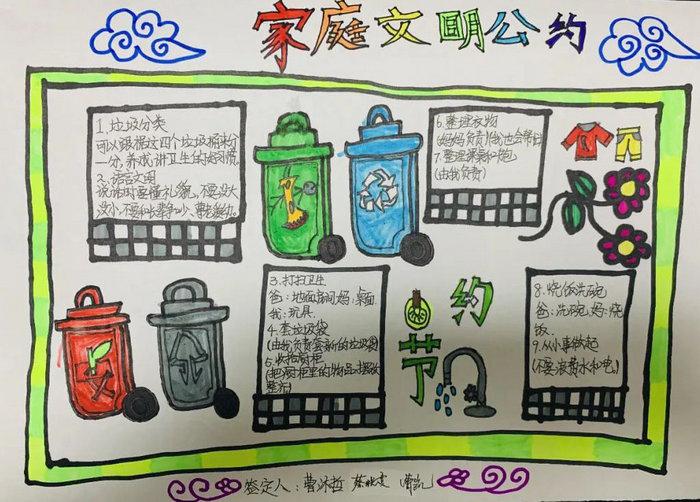 家庭文明公约
1.垃圾分类
可以跟据这四个垃圾桶来分
一分,养成讲卫生的好习惯
2.语言文明
说话时要懂礼貌,不要没大
没小,不要和长辈争吵、尊老爱幼。
6.整理衣物
(妈妈负责)我也会帮忙
7.整理桌筐和书包
(由我负责)
3.打扫卫生
爸:地面房间 妈:桌面
我:玩具.
4.套垃圾袋
(由我负责套新的垃圾袋)
5.收拾橱柜
(把橱柜里的物品摆放
整齐)
节约
8.烧饭洗碗
爸:洗碗.妈:烧
饭.
9.从小事做起
(不要浪费水和电)
签定人:曹